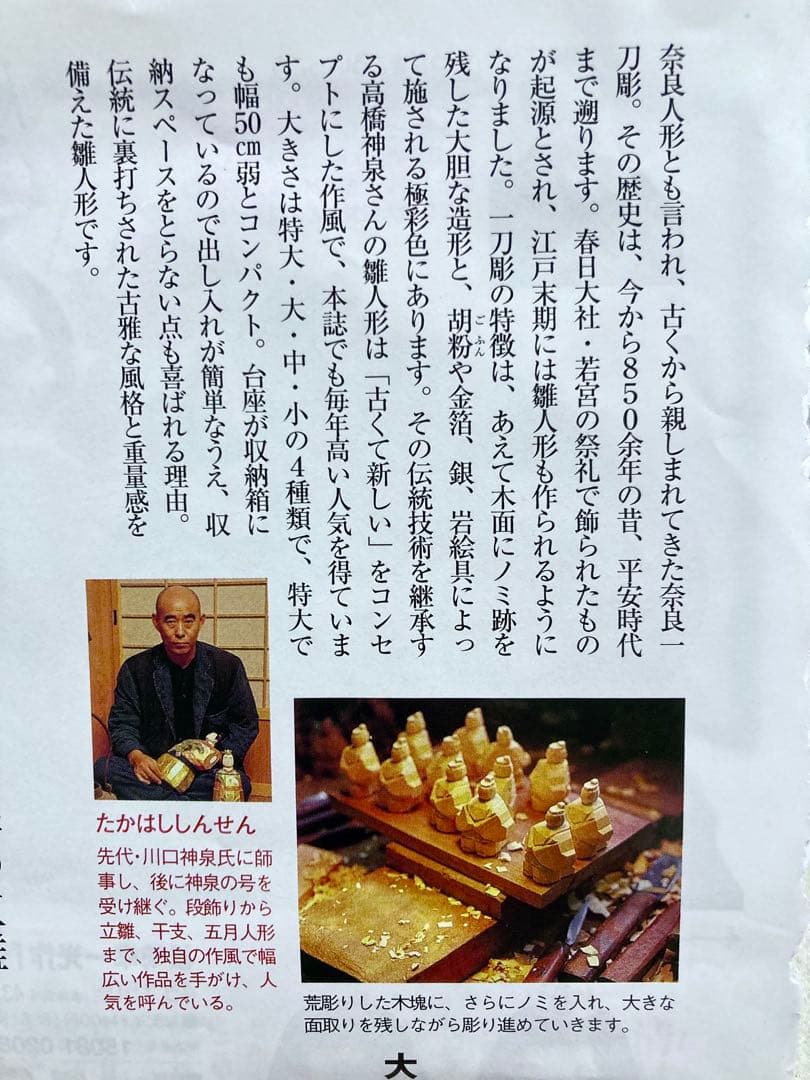 奈良人形とも言われ、古くから親しまれてきた奈良一
刀彫。その歴史は、今から850余年の昔、平安時代
まで遡ります。春日大社・若宮の祭礼で飾られたもの
が起源とされ、江戸末期には雛人形も作られるように
なりました。一刀彫の特徴は、あえて木面にノミ跡を
残した大胆な造形と、胡粉や金箔、銀、岩絵具によっ
ごふん
て施される極彩色にあります。その伝統技術を継承す
る高橋神泉さんの雛人形は「古くて新しい」をコンセ
プトにした作風で、本誌でも毎年高い人気を得ていま
す。大きさは特大・大・中・小の4種類で、特大で
も幅50cm弱とコンパクト。台座が収納箱に
なっているので出し入れが簡単なうえ、収
納スペースをとらない点も喜ばれる理由。
伝統に裏打ちされた古雅な風格と重量感を
備えた雛人形です。
たかはししんせん
先代・川口神泉氏に師
事し、後に神泉の号を
受け継ぐ。段飾りから
立雛、干支、五月人形
まで、独自の作風で幅
広い作品を手がけ、人
気を呼んでいる。
荒彫りした木塊に、さらにノミを入れ、大きな
面取りを残しながら彫り進めていきます。
大